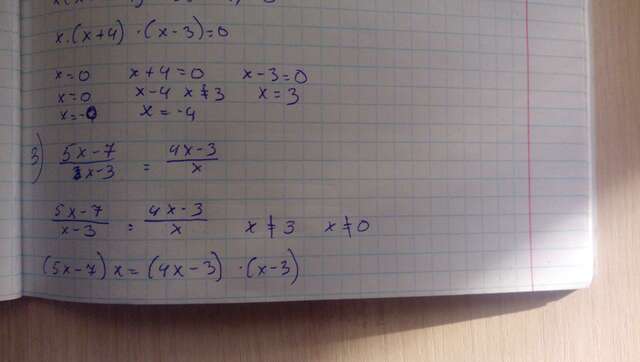 x·(x+4)·(x-3)=0
x=0 x+4=0 x-3=0
x=0 x-4 x≠3 x=3
x=-0 x=-4
3) 5x-7/x-3 = 4x-3/x
5x-7/x-3 = 4x-3/x x≠3 x≠0
(5x-7)x=(4x-3)·(x-3)